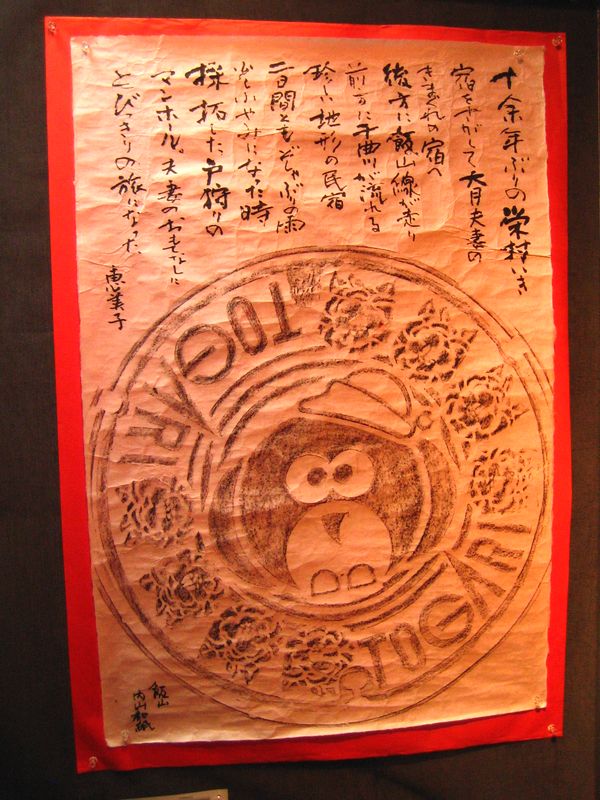 十余年ぶりの栄村いき
宿をさがして大月夫妻の
きまぐれの宿へ
後方に飯山線が走り
前方に千曲川が流れる
珍しい地形の民宿
二日間ともどしゃぶりの雨
少し小やみになった時
採拓した戸狩りの
マンホール。夫妻のおもてなしに
とびっきりの旅になった
恵美子
TOGARI
TOGARI
飯山
内山和紙